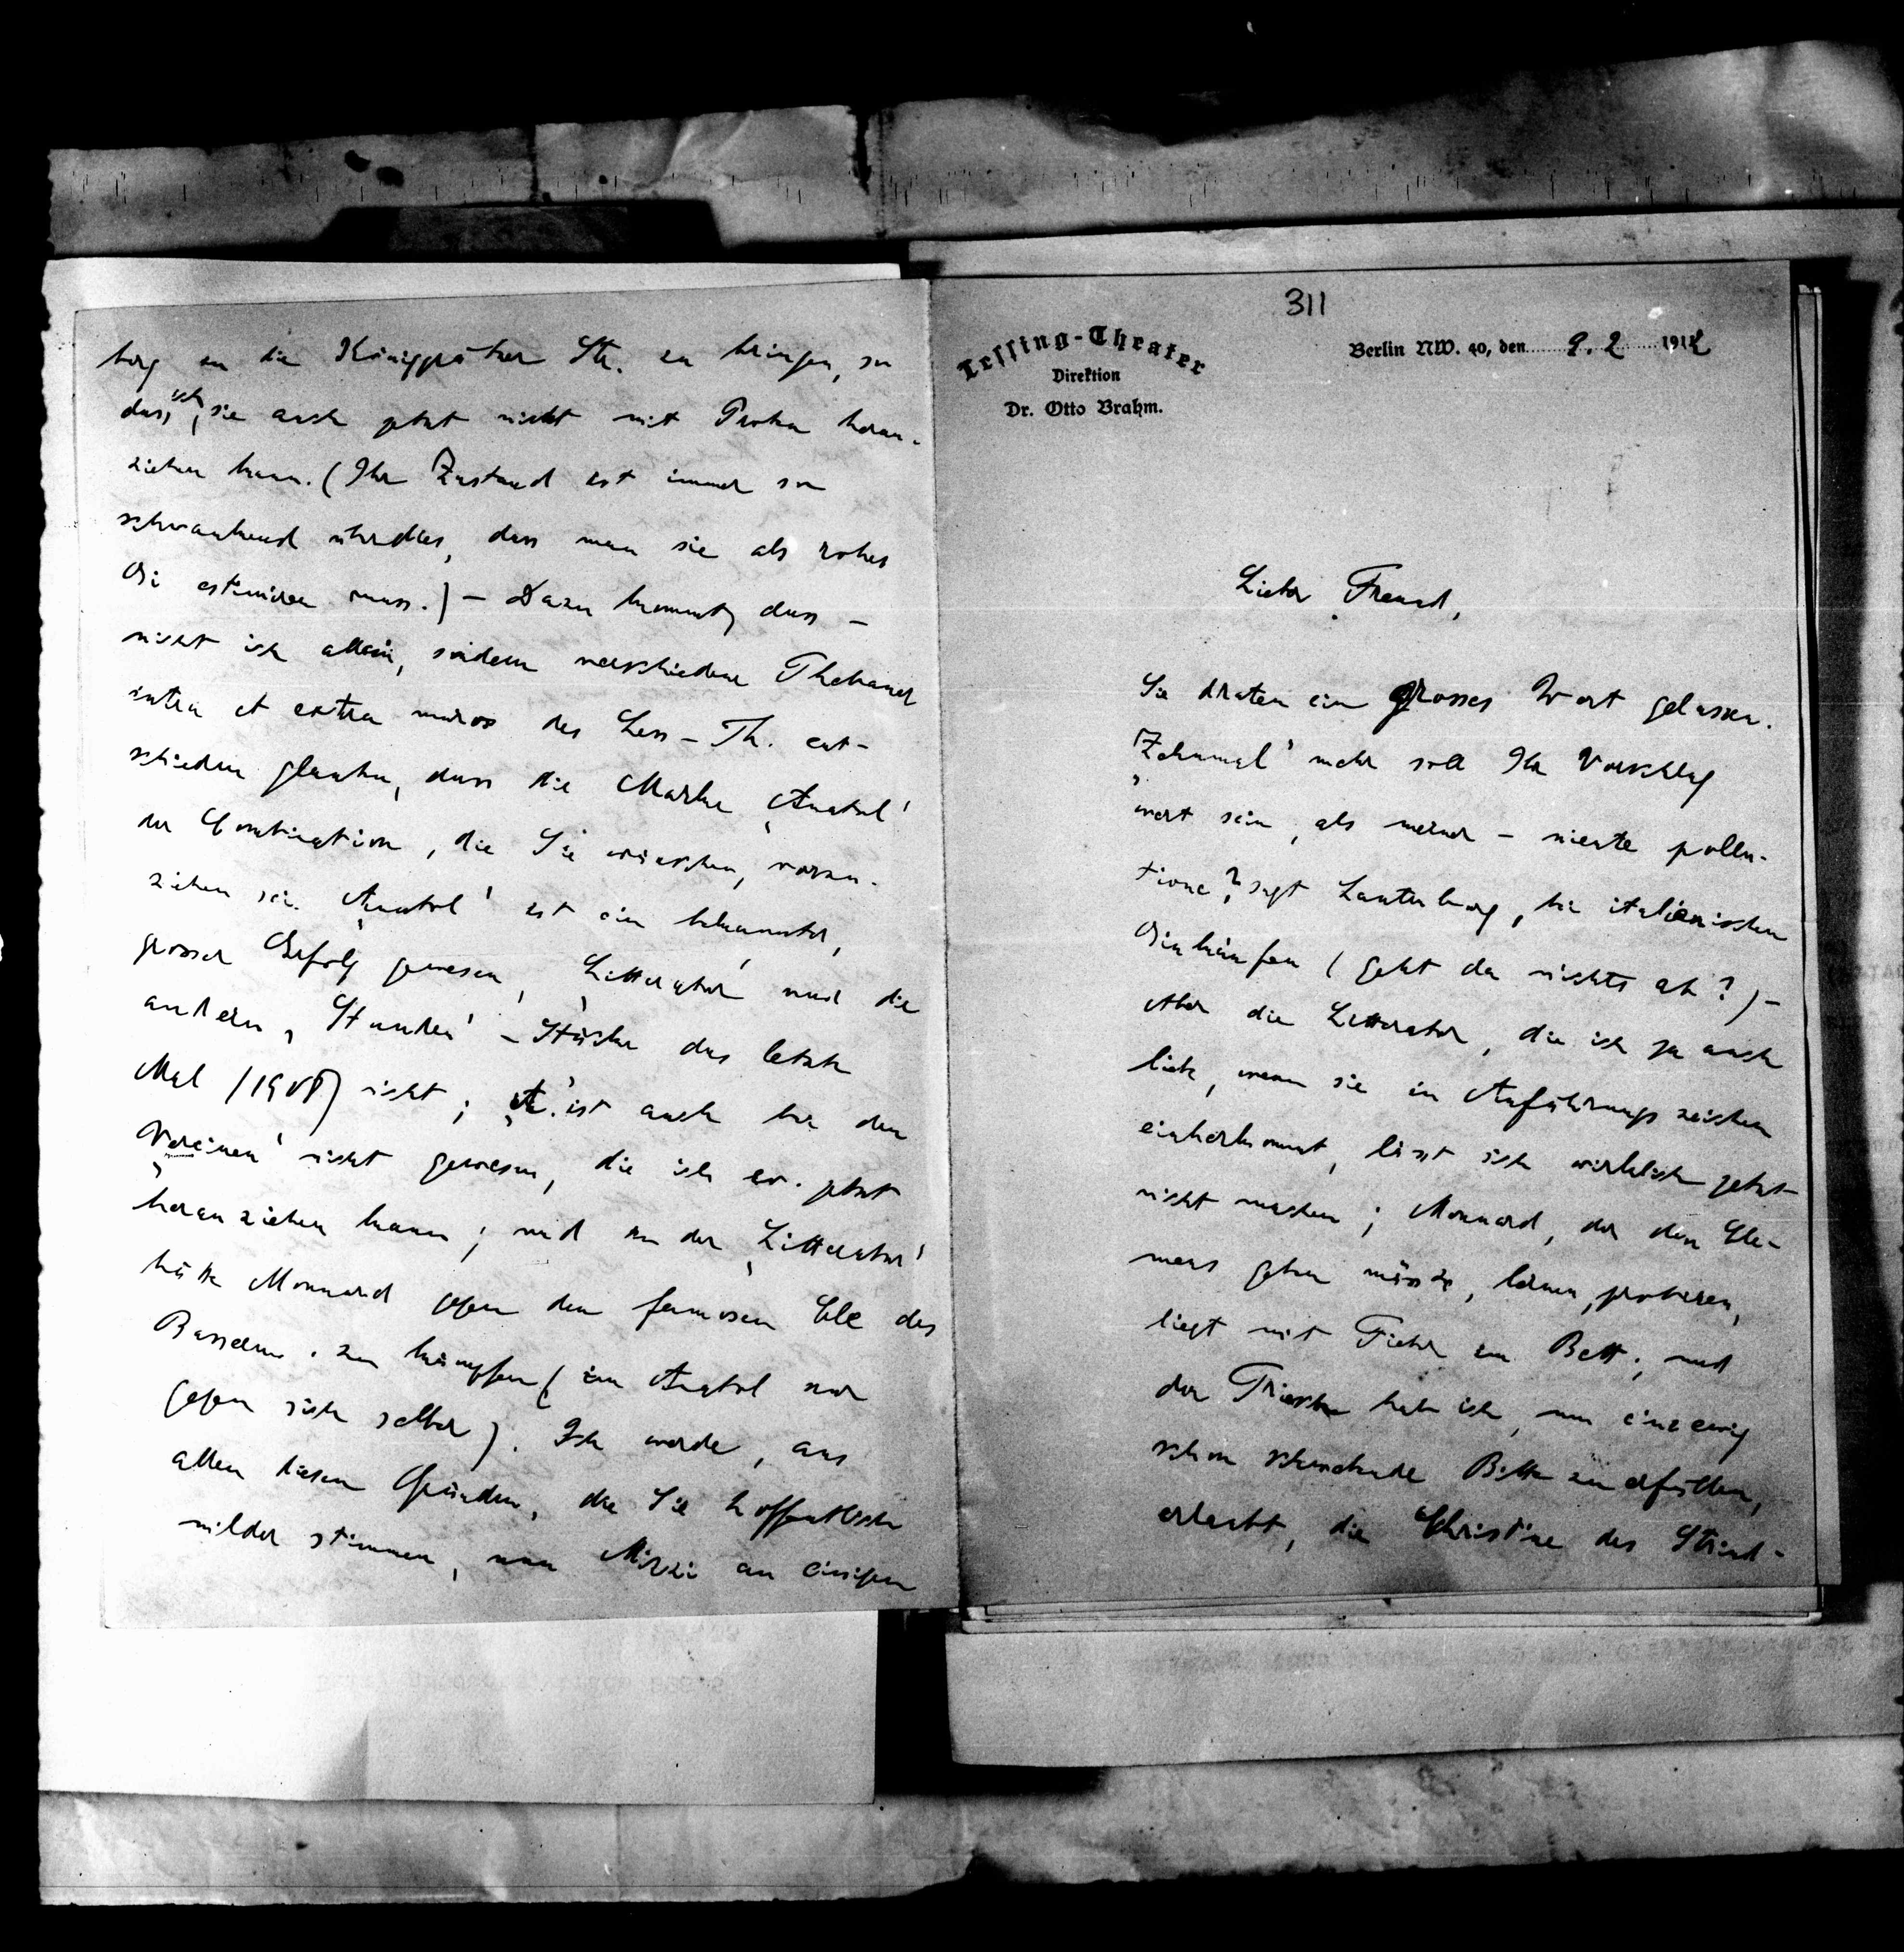 311
Lessing-Theater
Direktion
Dr. Otto Brahm.
Berlin NW. 40, den 9. 2 1912
Lieber Freund,
Sie draten ein grosses Wort gelassen.
„Zehnmal‘ mehr soll Ihr Vorschlag
wert sein, als meiner – niente pollu-
tione? sagt Lautenburg, bei italienischen
Einkäufen (geht da nichts ab?) –
Aber die Litteratur, die ich ja auch
lieb, wenn sie in Anführungszeichen
einherkommt, lässt sich wirklich jetzt
nicht machen; Monnard, der den Cle-
mens geben müsste, lernen, probiren,
liegt mit Fieber zu Bett; und
der Triesch hab ich, um eine ewig
schon schwebende Bitte zu erfüllen,
erlaubt, die Christine des Strind-
berg in die Königgrätzer Str. zu bringen, so
dass ich sie auch jetzt nicht mit Proben heran-
ziehen kann. (Ihr Zustand ist immer so
schwankend überdies, dass man sie als rohes
Ei estimiren muss.) – Dazu kommt, dass –
nicht ich allein, sondern verschiedene Thebaner
intra et extra muros des Less-Th. ent-
schieden glauben, dass die Marke ‚Anatol‘
der Combination, die Sie wünschen, vorzu-
ziehen sei. ‚Anatol‘ ist ein bekannter,
grosser Erfolg gewesen, ‚Litteratur‘ und die
andern ‚Stunden‘-Stücke das letzte
Mal (1908) nicht; ‚A.‘ ist auch bei den
‚Vereinen‘ nicht gewesen, die ich ev. jetzt
heranziehen kann; und in der ‚Litteratur‘
hätte Monnard gegen den famosen Cle des
Basserm. zu kämpfen (im Anatol nur
gegen sich selber). Ich werde, aus
allen diesen Gründen, die Sie hoffentlich
milder stimmen, nun Mizi an einigen